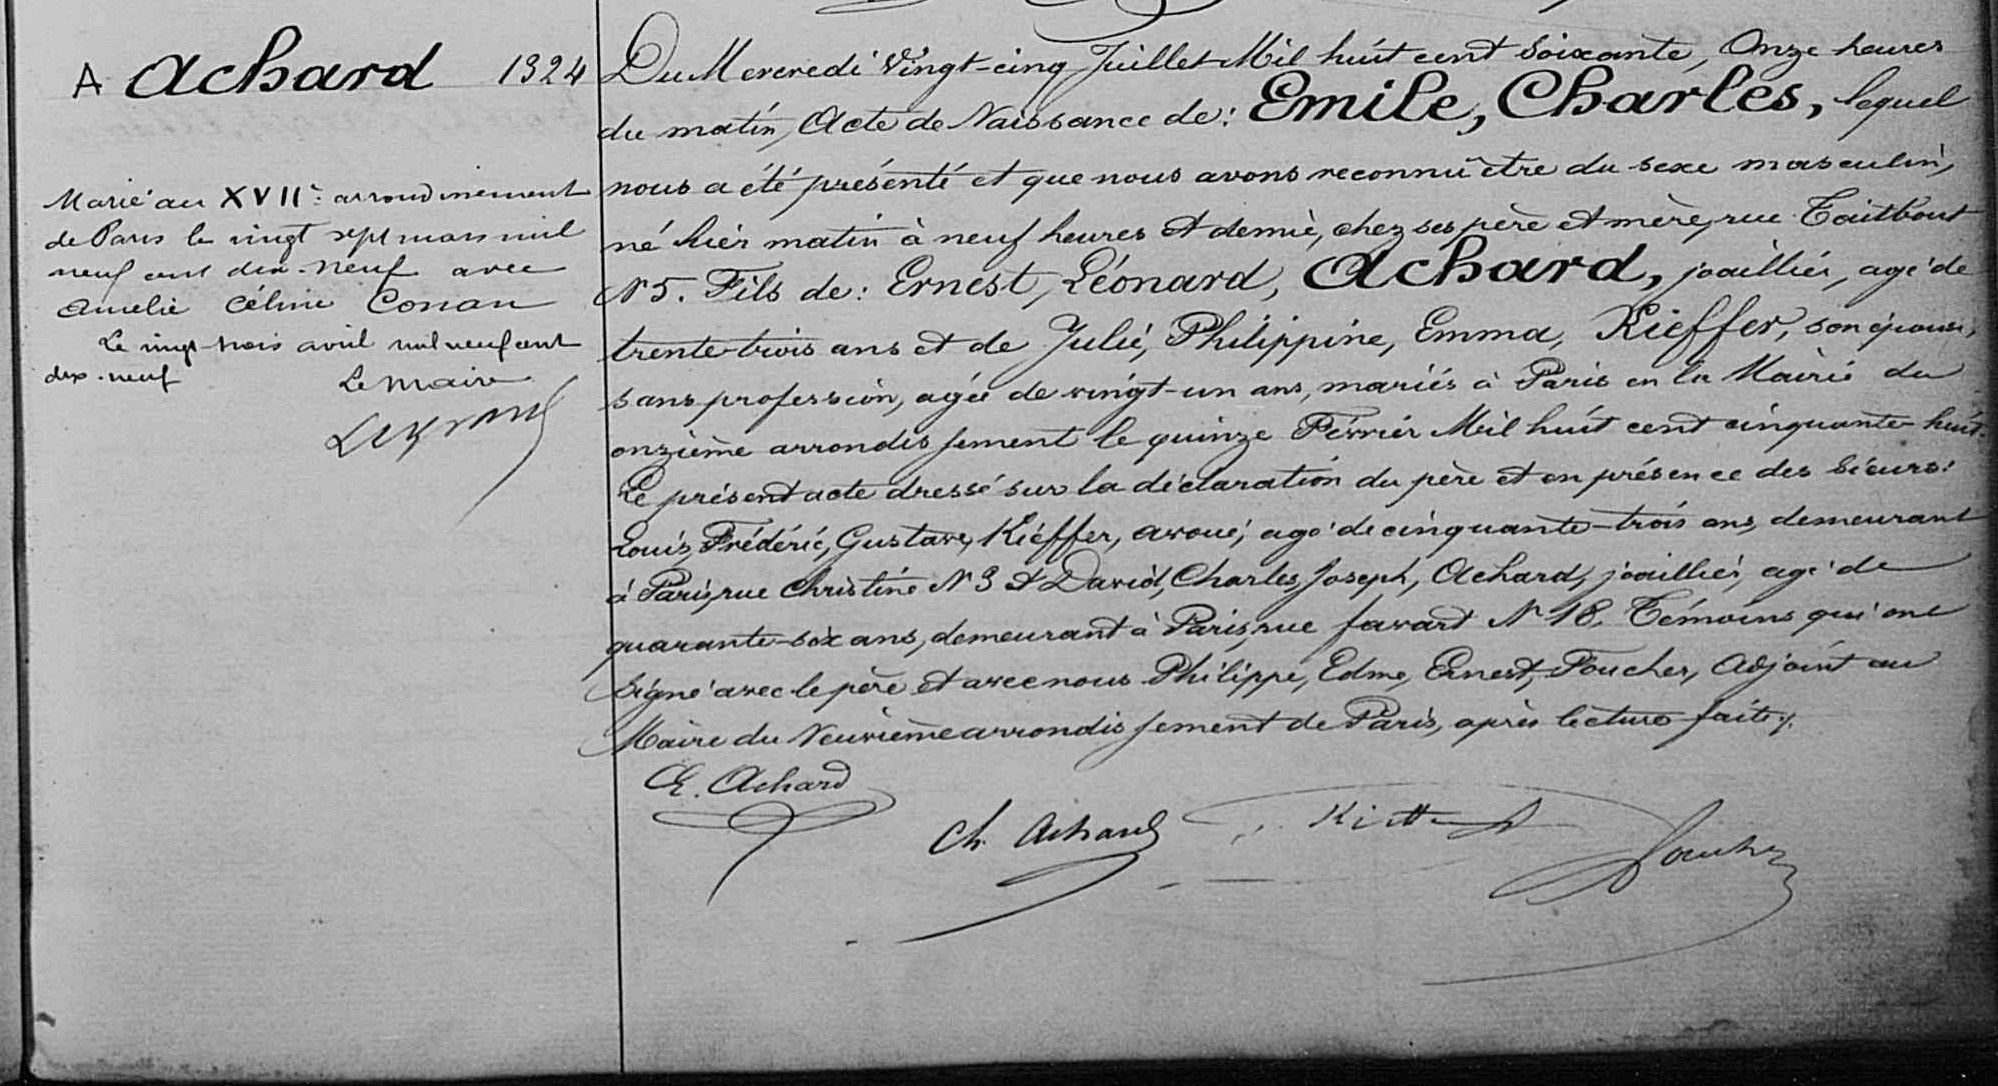 A Achard 1324
Marié au XVIIe arrondissement
de Paris le vingt sept mars mil
neuf cent dix-neuf avec
Amélie Céline Conan
Le vingt-trois avril mil neuf cent
dix-neuf Le Maire
Du Mercredi Vingt-cinq Juillet Mil huit cent Soixante, Onze heures
du matin, Acte de Naissance de: Emile, Charles, lequel
nous a été présenté et que nous avons reconnu être du sexe masculin,
né hier matin à neuf heures et demie, chez ses père et mère, rue Taitbout
N 5. Fils de: Ernest, Léonard, Achard, joaillier, agé de
trente-trois ans et de Julie, Philippine, Emma, Kieffer, son épouse,
sans profession, agée de vingt-un ans, mariés à Paris en la Mairie du
onzième arrondissement le quinze Février Mil huit cent cinquante-huit.
Le présent acte dressé sur la déclaration du père et en présence des Sieurs:
Louis, Frédéric, Gustave, Kieffer, avoué, agé de cinquante-trois ans, demeurant
à Paris, rue Christine N 3 et David, Charles, Joseph, Achard, joaillier, agé de
quarante-six ans, demeurant à Paris, rue favart N 18. Témoins qui ont
Signé avec le père et avec nous Philippe, Edme, Ernest, Foucher, Adjoint au
Maire du Neuvième arrondissement de Paris, après lecture faite.
E. Achard
Ch. Achard Kieffer Foucher